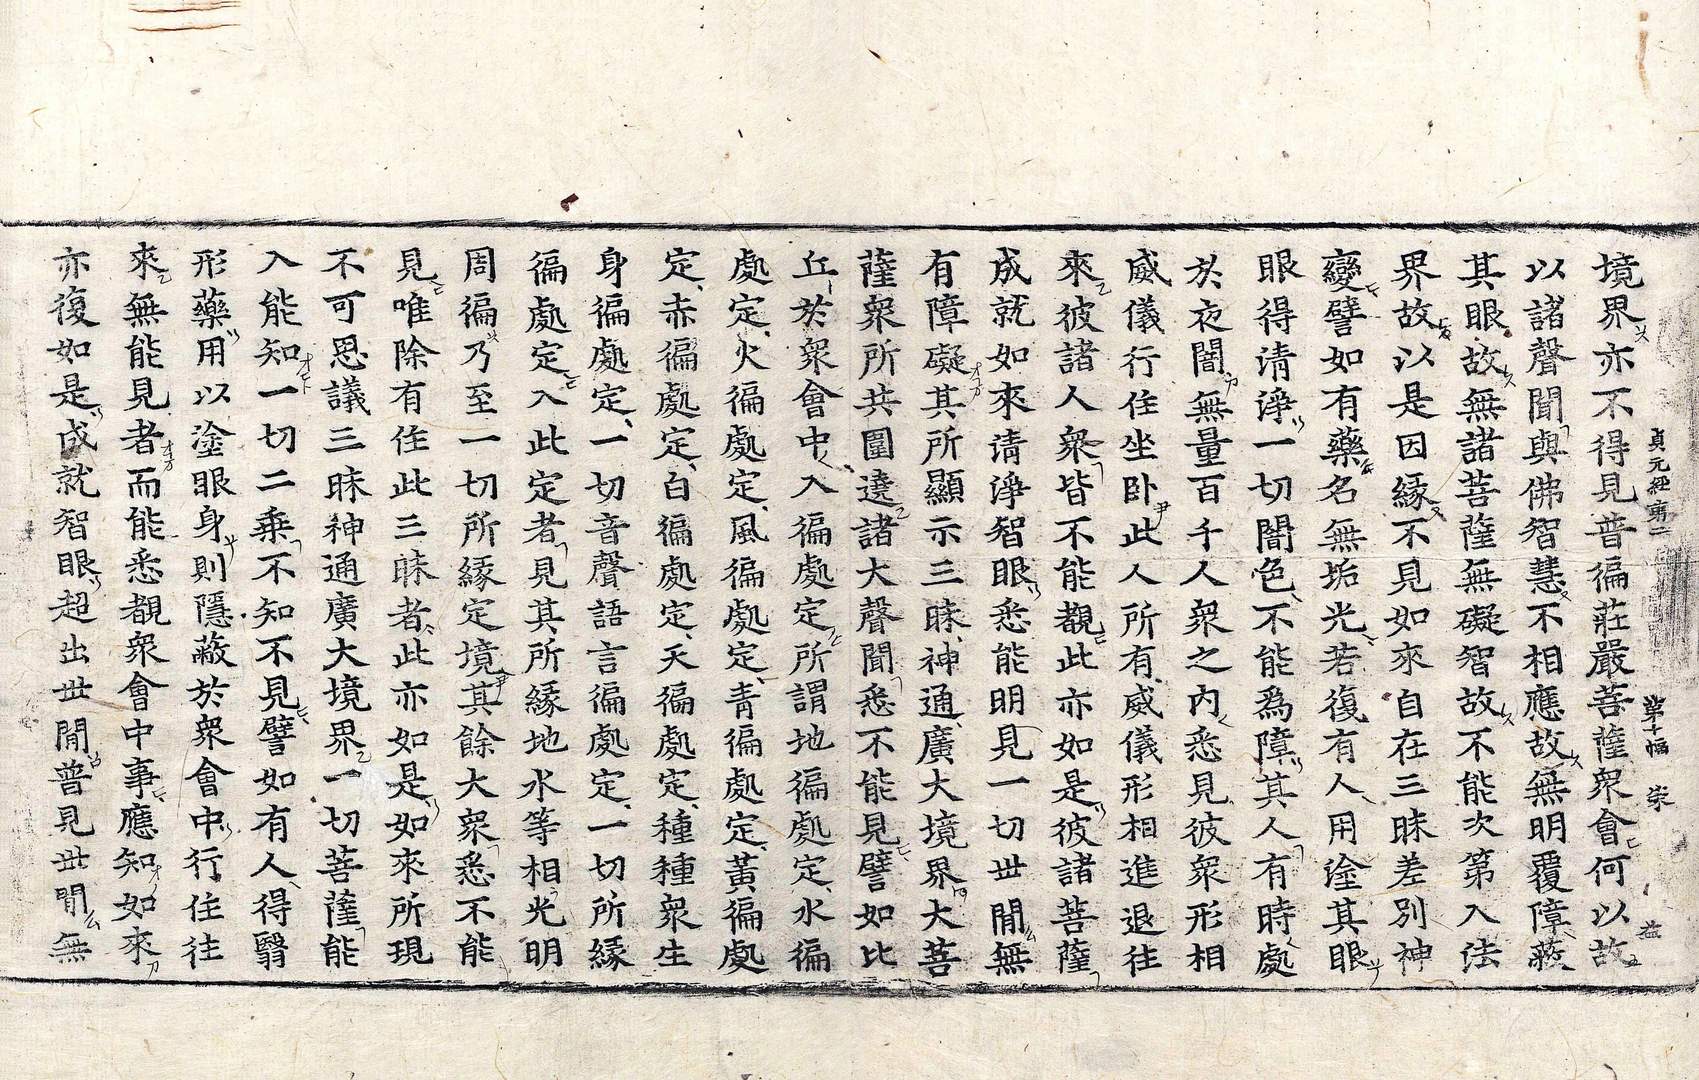 貞元經第二 第十幅 崇
境界亦不得見普徧莊嚴菩薩衆會何以故
以諸聲聞與佛智慧不相應故無明覆障蔽
其眼故無諸菩薩無礙智故不能次第入法
界故以是因緣不見如來自在三昧差別神
變譬如有藥名無垢光若復有人用塗其眼
眼得清淨一切闇色不能爲障其人有時處
於夜闇無量百千人衆之內悉見彼衆形相
威儀行住坐卧此人所有威儀形相進退往
來彼諸人衆皆不能覩此亦如是彼諸菩薩
成就如來清淨智眼悉能明見一切世閒無
有障礙其所顯示三昧神通廣大境界大菩
薩衆所共圍遶諸大聲聞悉不能見譬如比
丘於衆會中入徧處定所謂地徧處定水徧
處定火徧處定風徧處定青徧處定黃徧處
定赤徧處定白徧處定天徧處定種種衆生
身徧處定一切音聲語言徧處定一切所緣
徧處定入此定者見其所緣地水等相光明
周徧乃至一切所緣定境其餘大衆悉不能
見唯除有住此三昧者此亦如是如來所現
不可思議三昧神通廣大境界一切菩薩能
入能知一切二乘不知不見譬如有人得翳
形藥用以塗眼身則隱蔽於衆會中行住往
來無能見者而能悉覩衆會中事應知如來
亦復如是成就智眼超出世閒普見世閒無